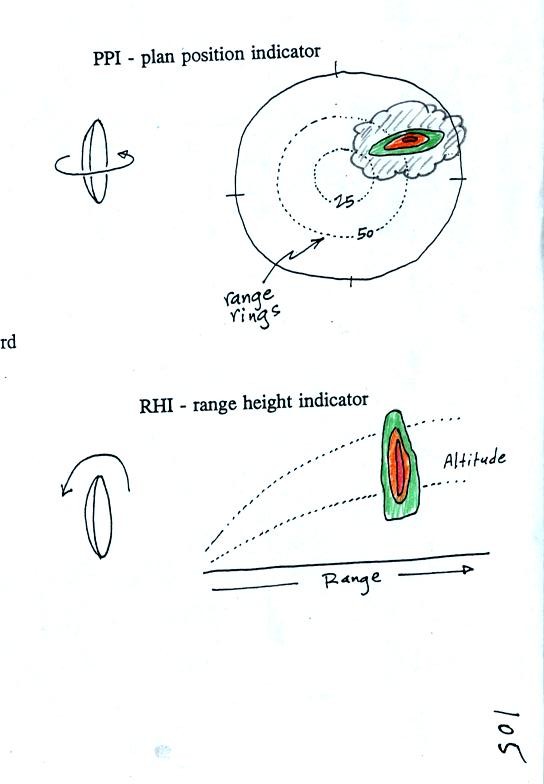 PPI - plan position indicator
25
50
range
rings
rd
RHI - range height indicator
Altitude
Range
105